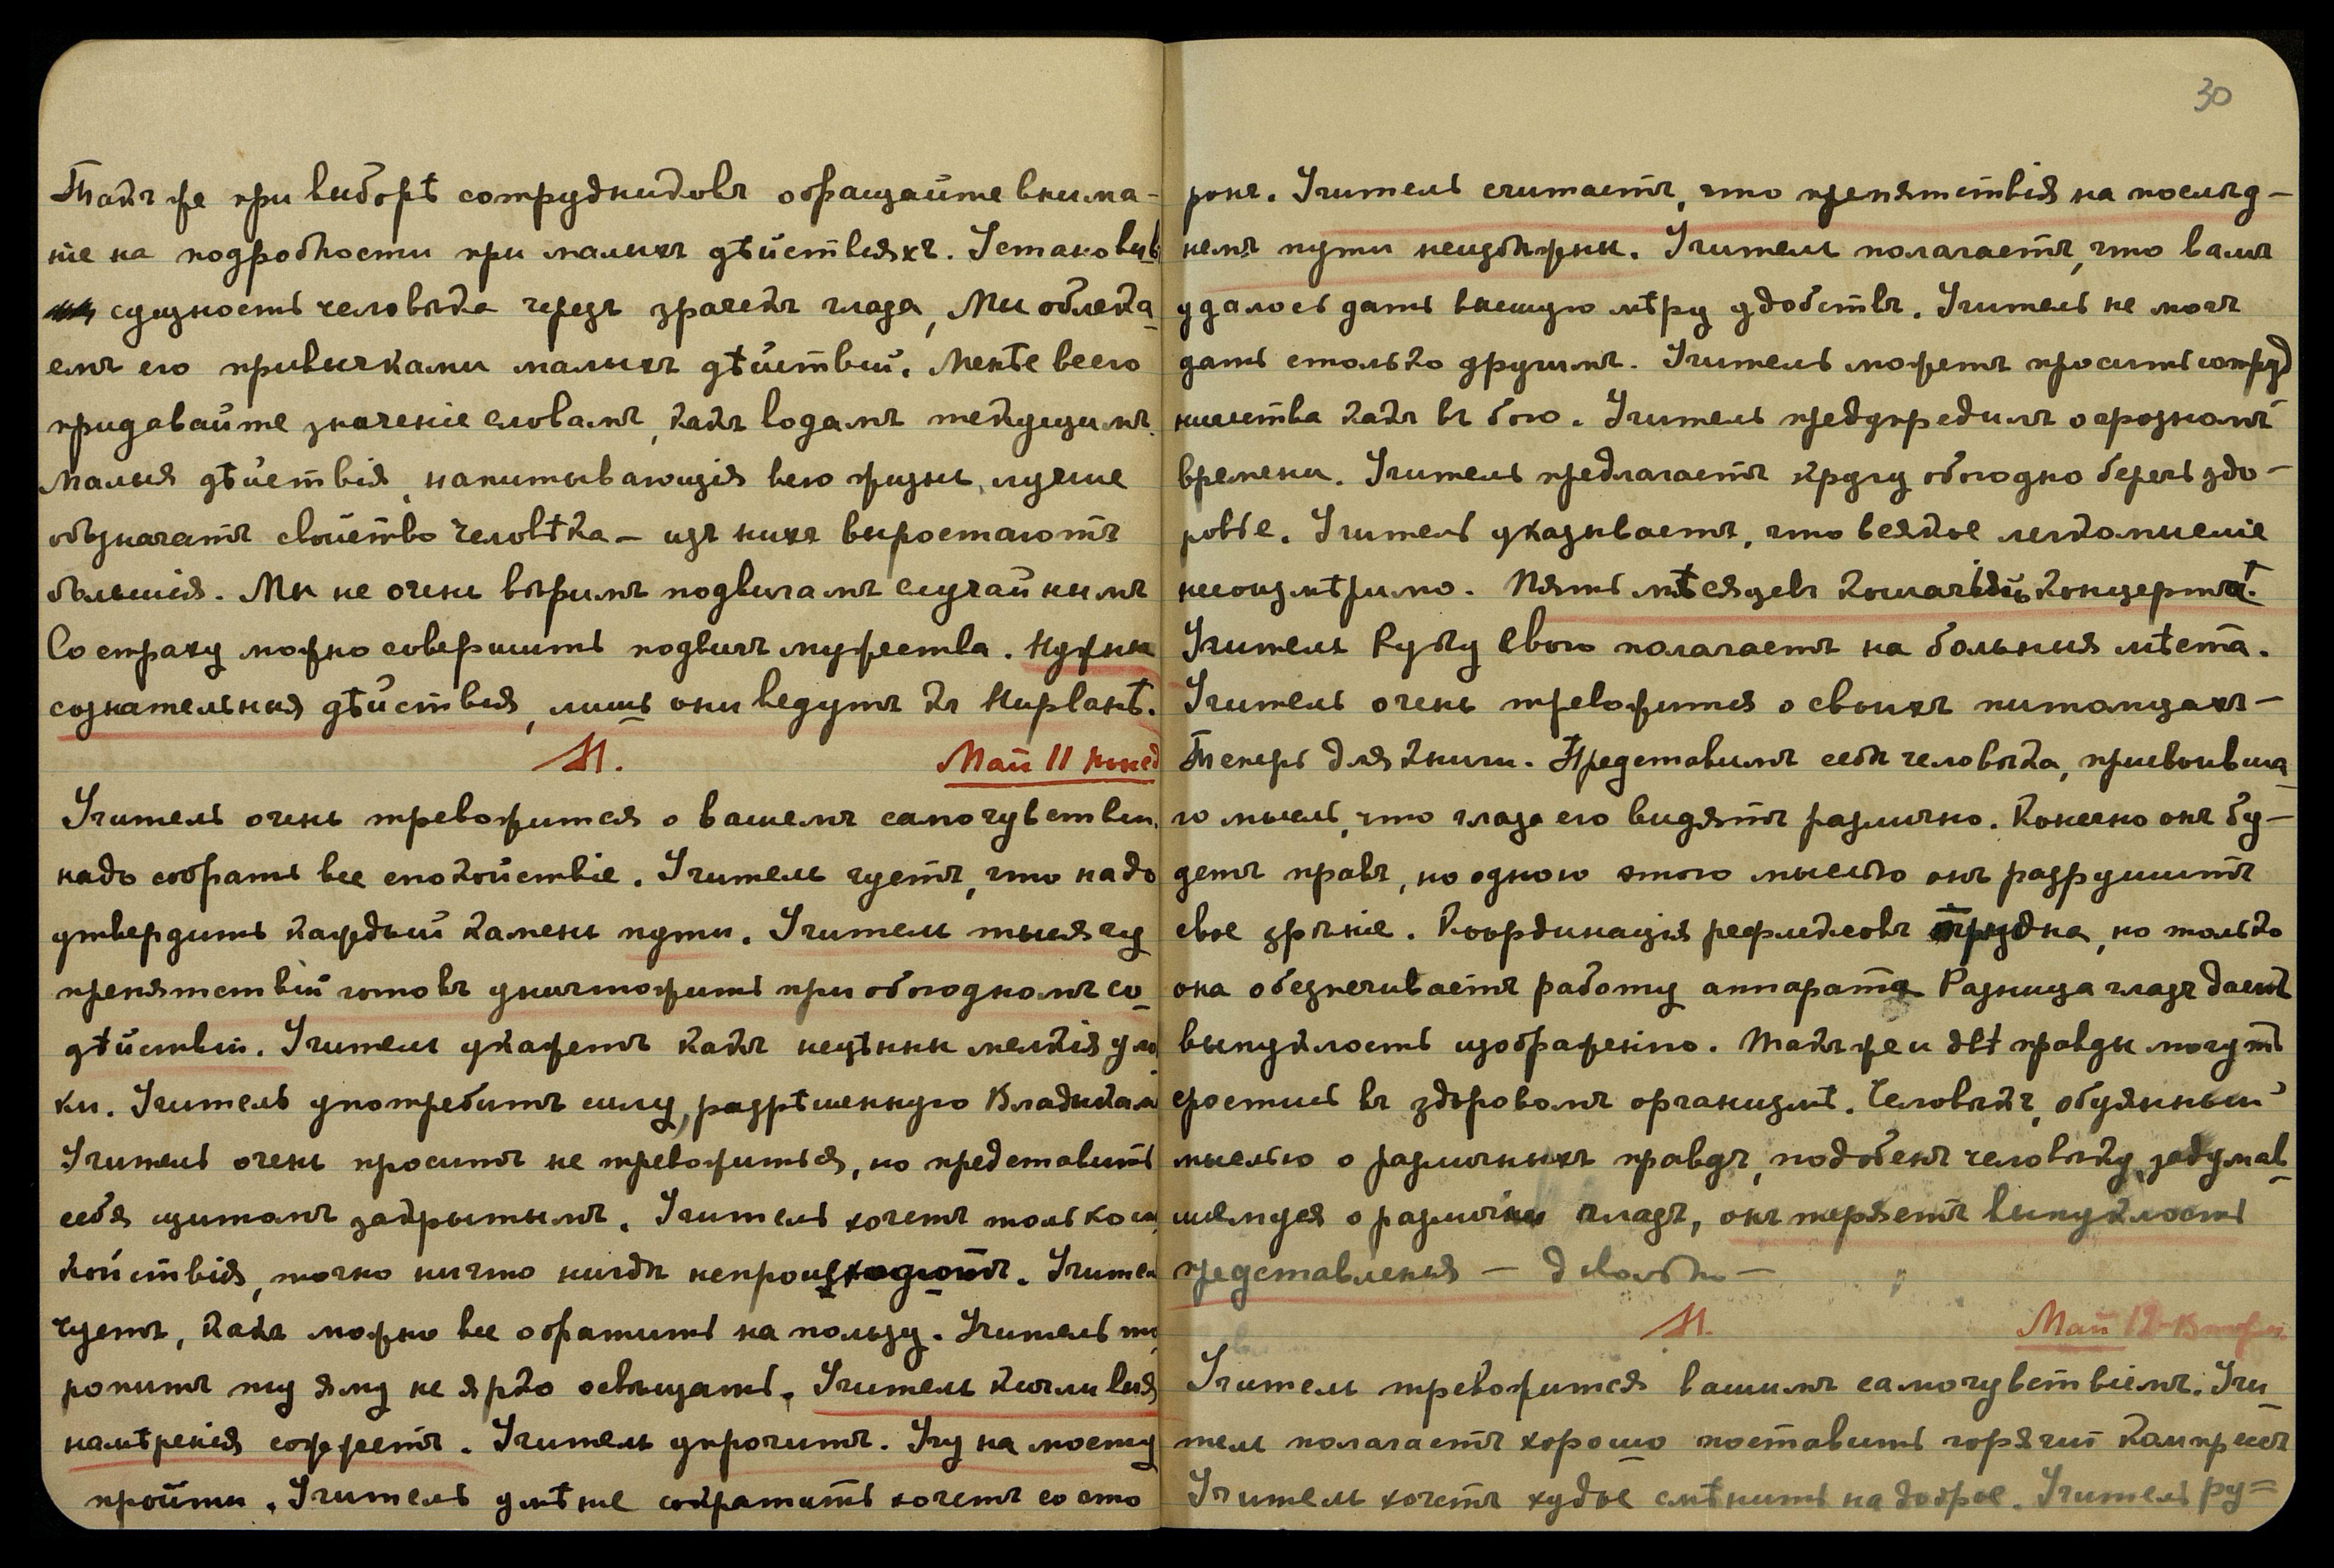 Такъ же при выборѣ сотрудниковъ обращайте внима-
ніе на подробности при малыхъ дѣйствіяхъ. Установивъ
сущность человѣка черезъ зрачекъ глаза, Мы облека-
емъ его привычками малыхъ дѣйствій. Менѣе всего
придавайте значеніе словамъ, какъ водамъ текущимъ.
Малыя дѣйствія, напитывающія всю жизнь, лучше
обозначатъ свойство человѣка – изъ нихъ выростаютъ
большія. Мы не очень вѣримъ подвигамъ случайнымъ
Со страху можно совершить подвигъ мужества. Нужны
сознательныя дѣйствія, лишь они ведутъ къ Нирванѣ.
М. Май 11 понед
Учитель очень тревожится о вашемъ самочувствіи.
надо собрать все спокойствіе. Учитель чуетъ, что надо
утвердить каждый камень пути. Учитель тысячу
препятствій готовъ уничтожить при обоюдномъ со-
дѣйствіи. Учитель укажетъ какъ нецѣнны мелкія
ки. Учитель употребитъ силу, разрѣшенную Владыкам
Учитель очень проситъ не тревожиться, но представить
себя щитомъ закрытымъ. Учитель хочетъ только спо
койствія, точно ничто нигдѣ непроисходитъ. Учитель
чуетъ, какъ можно все обратить на пользу. Учитель то
ропитъ ту яму не ярко освѣщать. Учитель кичливыя
намѣренія сожжетъ. Учитель упрочитъ. Учу на мосту
пройти. Учитель умѣніе сократить хочетъ со сто
30
ронъ. Учитель считаетъ, что препятствія на послѣд-
немъ пути неизбѣжны. Учитель полагаетъ, что вамъ
удалось дать высшую мѣру удобствъ. Учитель не могъ
дать столько другимъ. Учитель можетъ просить сотруд
ничества какъ въ бою. Учитель предупредилъ о грозномъ
времени. Учитель предлагаетъ кругу обоюдно беречь здо-
ровье. Учитель указываетъ, что всякое легкомысліе
несоизмѣримо. Пять мѣсяцевъ кошачьихъ концерта!
Учитель Руку Свою полагаетъ на больныя мѣста.
Учитель очень тревожится о своихъ питомцахъ –
Теперь для книги. Представимъ себѣ человѣка, присвоивша-
го мысль, что глаза его видятъ различно. Конечно онъ бу-
детъ правъ, но одною этою мыслью онъ разрушитъ
свое зрѣніе. Координація рефлексовъ трудна, но только
она обезпечиваетъ работу аппарата Разница глазъ даетъ
выпуклость изображенію. Такъ же и двѣ правды могутъ
срости въ здоровомъ организмѣ. Человѣкъ, обуянный
мыслью о различныхъ правдъ, подобенъ человѣку, задумав-
шемуся о различіи глазъ, онъ теряетъ выпуклость
представленія – довольно –
М. Май 12 Вторн
Учитель тревожится вашимъ самочувствіемъ. Учи-
тель полагаетъ хорошо поставить горячій компрессъ
Учитель хочетъ худое смѣнить на доброе. Учитель ру=